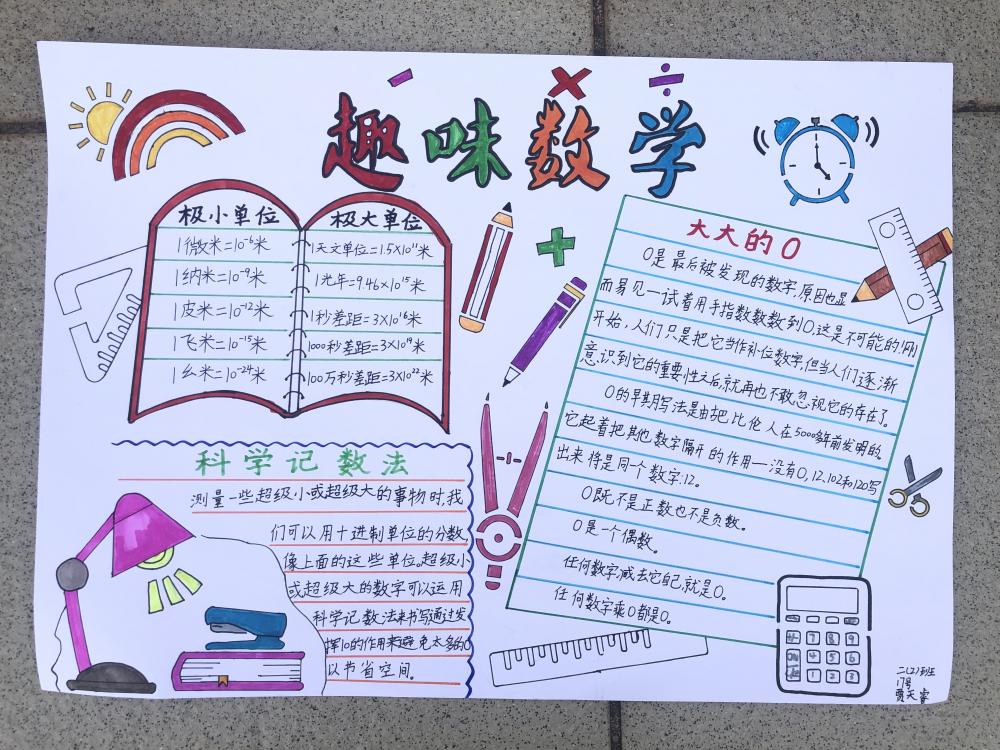 趣味数学
极小单位
1微米=10⁻⁶米
1纳米=10⁻⁹米
1皮米=10⁻¹²米
1飞米=10⁻¹⁵米
1幺米=10⁻²⁴米
极大单位
1天文单位=1.5×10¹¹米
1光年=9.46×10¹⁵米
1秒差距=3×10¹⁶米
1000秒差距=3×10¹⁹米
100万秒差距=3×10²²米
大大的0
0是最后被发现的数字,原因也显
而易见一试着用手指数数数到0.这是不可能的!刚
开始,人们只是把它当作补位数字,但当人们逐渐
意识到它的重要性之后,就再也不敢忽视它的存在了。
0的早期写法是由把比伦人在5000多年前发明的。
它起着把其他数字隔开的作用一没有0,12.102和120写
出来将是同个数字:12。
0既不是正数也不是负数。
0是一个偶数。
任何数字减去它自己,就是0。
任何数字乘0都是0。
科学记数法
测量一些超级小或超级大的事物时,我
们可以用十进制单位的分数,
像上面的这些单位。超级小
或超级大的数字可以运用
科学记数法来书写通过发
挥10的作用来避免太多的0
以节省空间。
7 8 9
4 5 6
1 2 3
二(2)班
17号
贾天睿